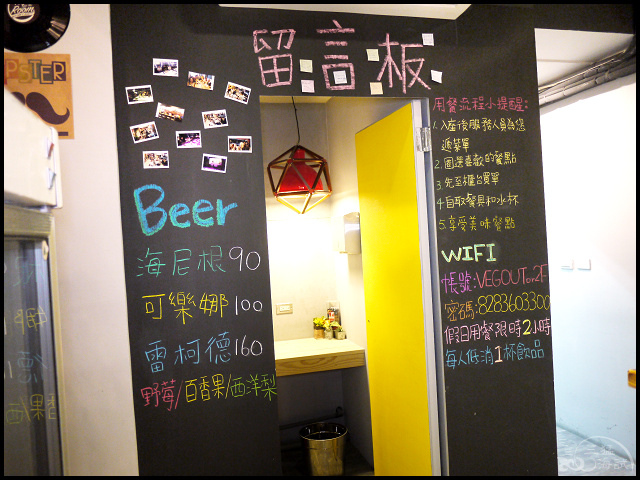 Room
PSTER
留言板
Beer
海尼根90
可樂娜100
雷柯德160
野莓/百香果/西洋梨
用餐流程小提醒:
1.入座後服務人員為您
遞菜單
2.圈選喜歡的餐點
3.先至櫃台買單
4.自取餐具和水杯
5.享受美味餐點
WIFI
帳號:VEGOUTon2F
密碼:8283603300
假日用餐限時2小時
每人低消1杯飲品